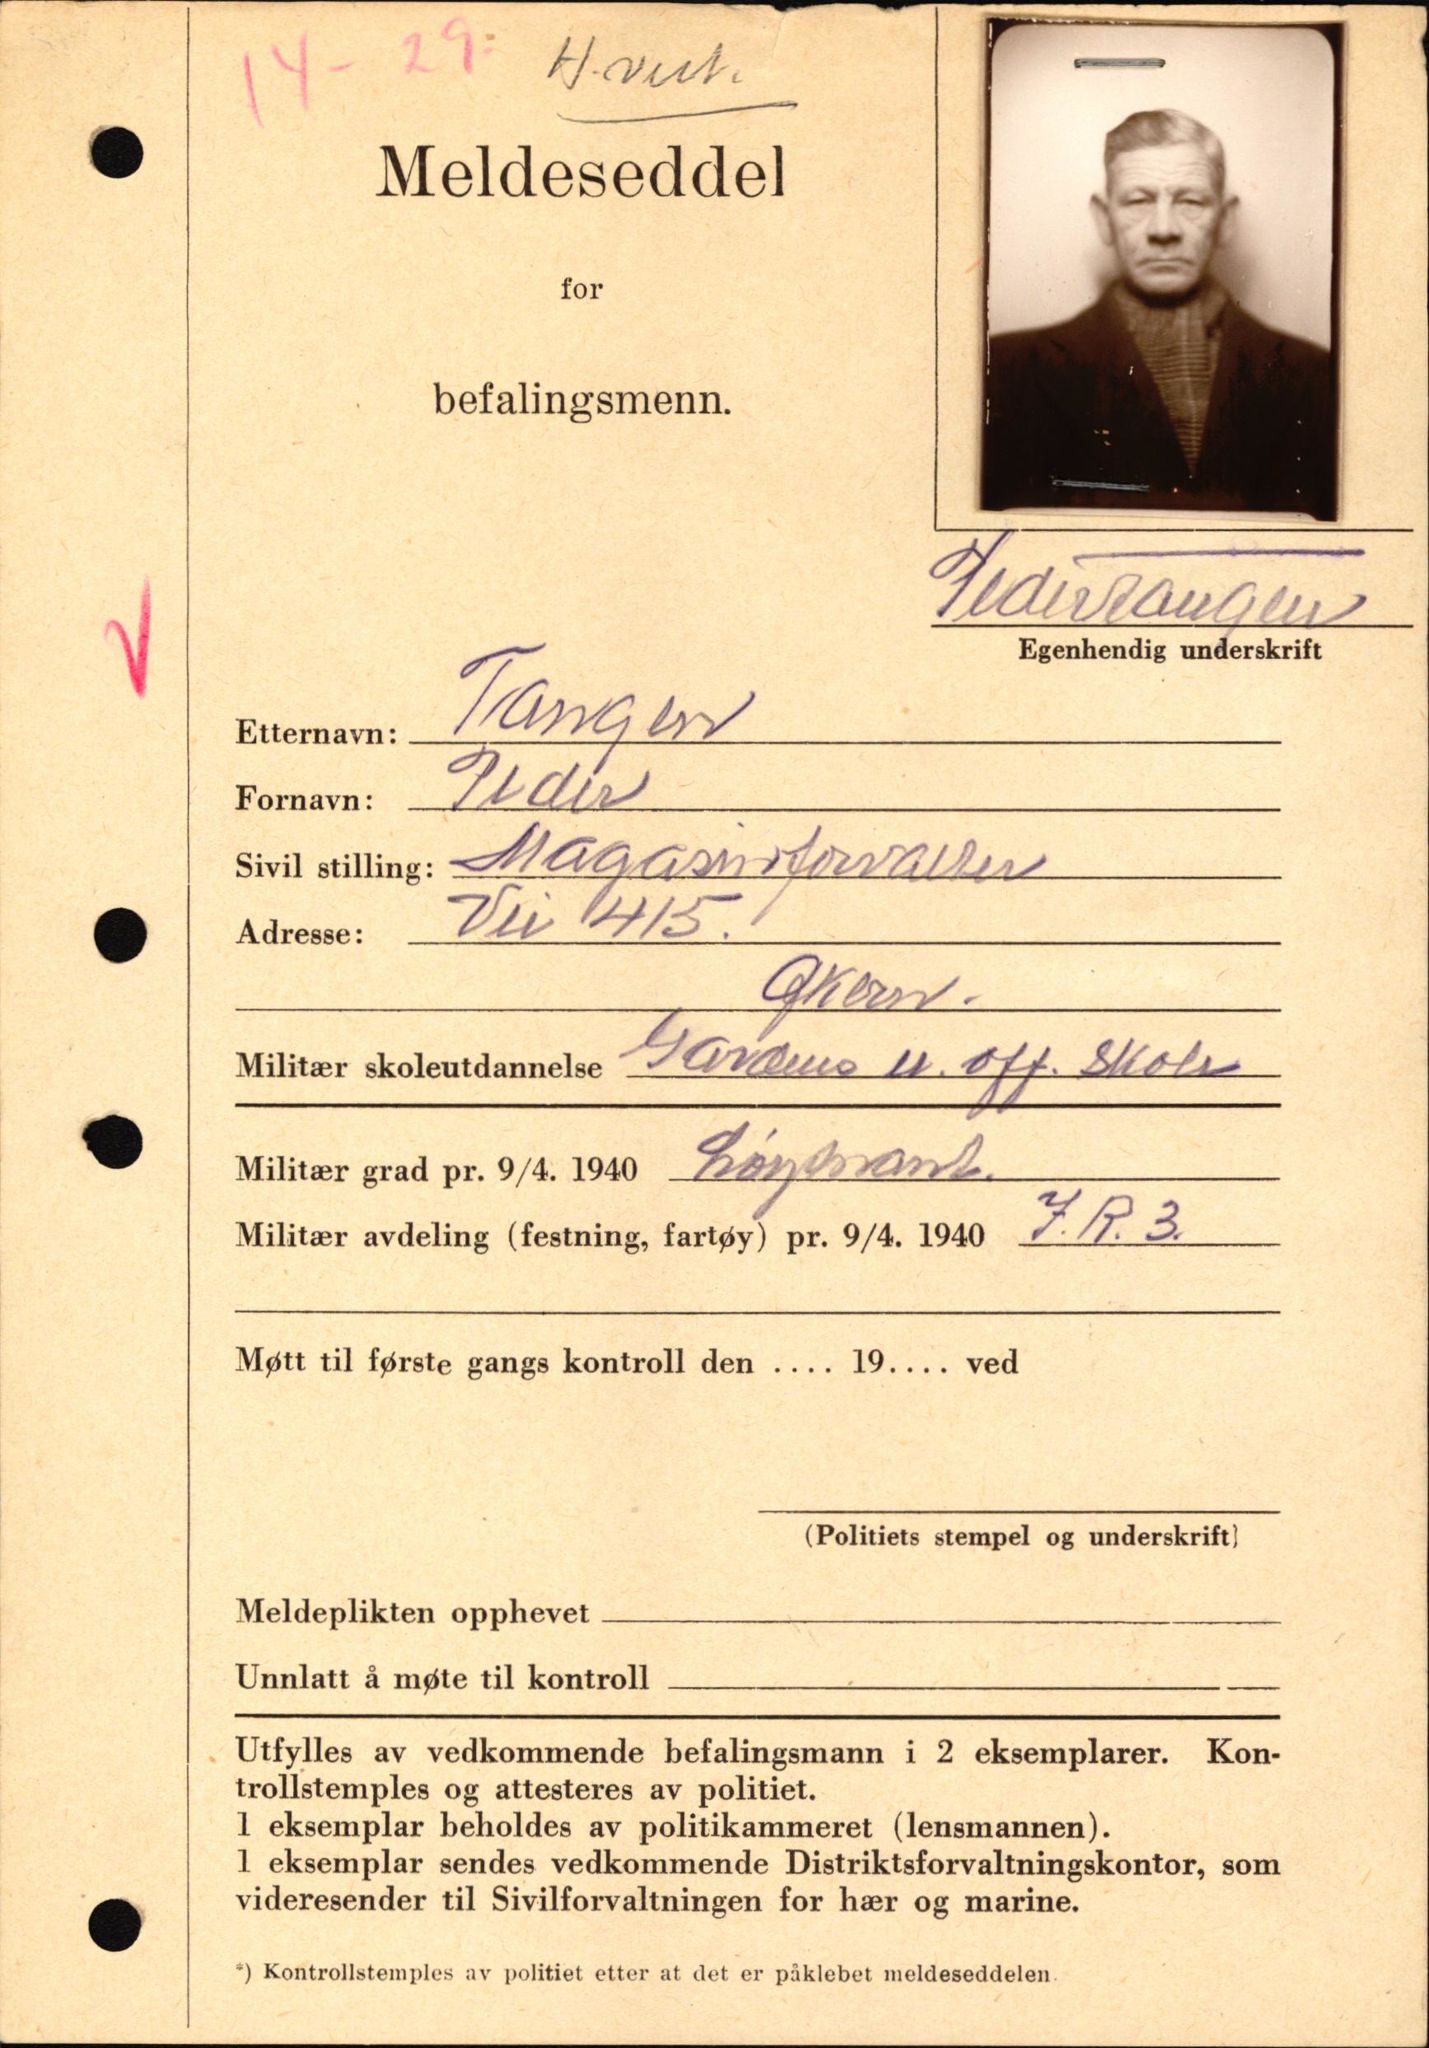 14 - 29:
H.vert.
Meldeseddel
for
befalingsmenn.
Peder Tangen
Egenhendig underskrift
Etternavn: Tangen
Fornavn: Peder
Sivil stilling: Magasinforvalter
Adresse: Vei 415.
Økern.
Militær skoleutdannelse Gardens u. off. skole
Militær grad pr. 9/4. 1940 Løytnant.
Militær avdeling (festning, fartøy) pr. 9/4. 1940 I.R.3.
Møtt til første gangs kontroll den .... 19.... ved
(Politiets stempel og underskrift)
Meldeplikten opphevet
Unnlatt å møte til kontroll
Utfylles av vedkommende befalingsmann i 2 eksemplarer. Kon-
trollstemples og attesteres av politiet.
1 eksemplar beholdes av politikammeret (lensmannen).
1 eksemplar sendes vedkommende Distriktsforvaltningskontor, som
videresender til Sivilforvaltningen for hær og marine.
*) Kontrollstemples av politiet etter at det er påklebet meldeseddelen.